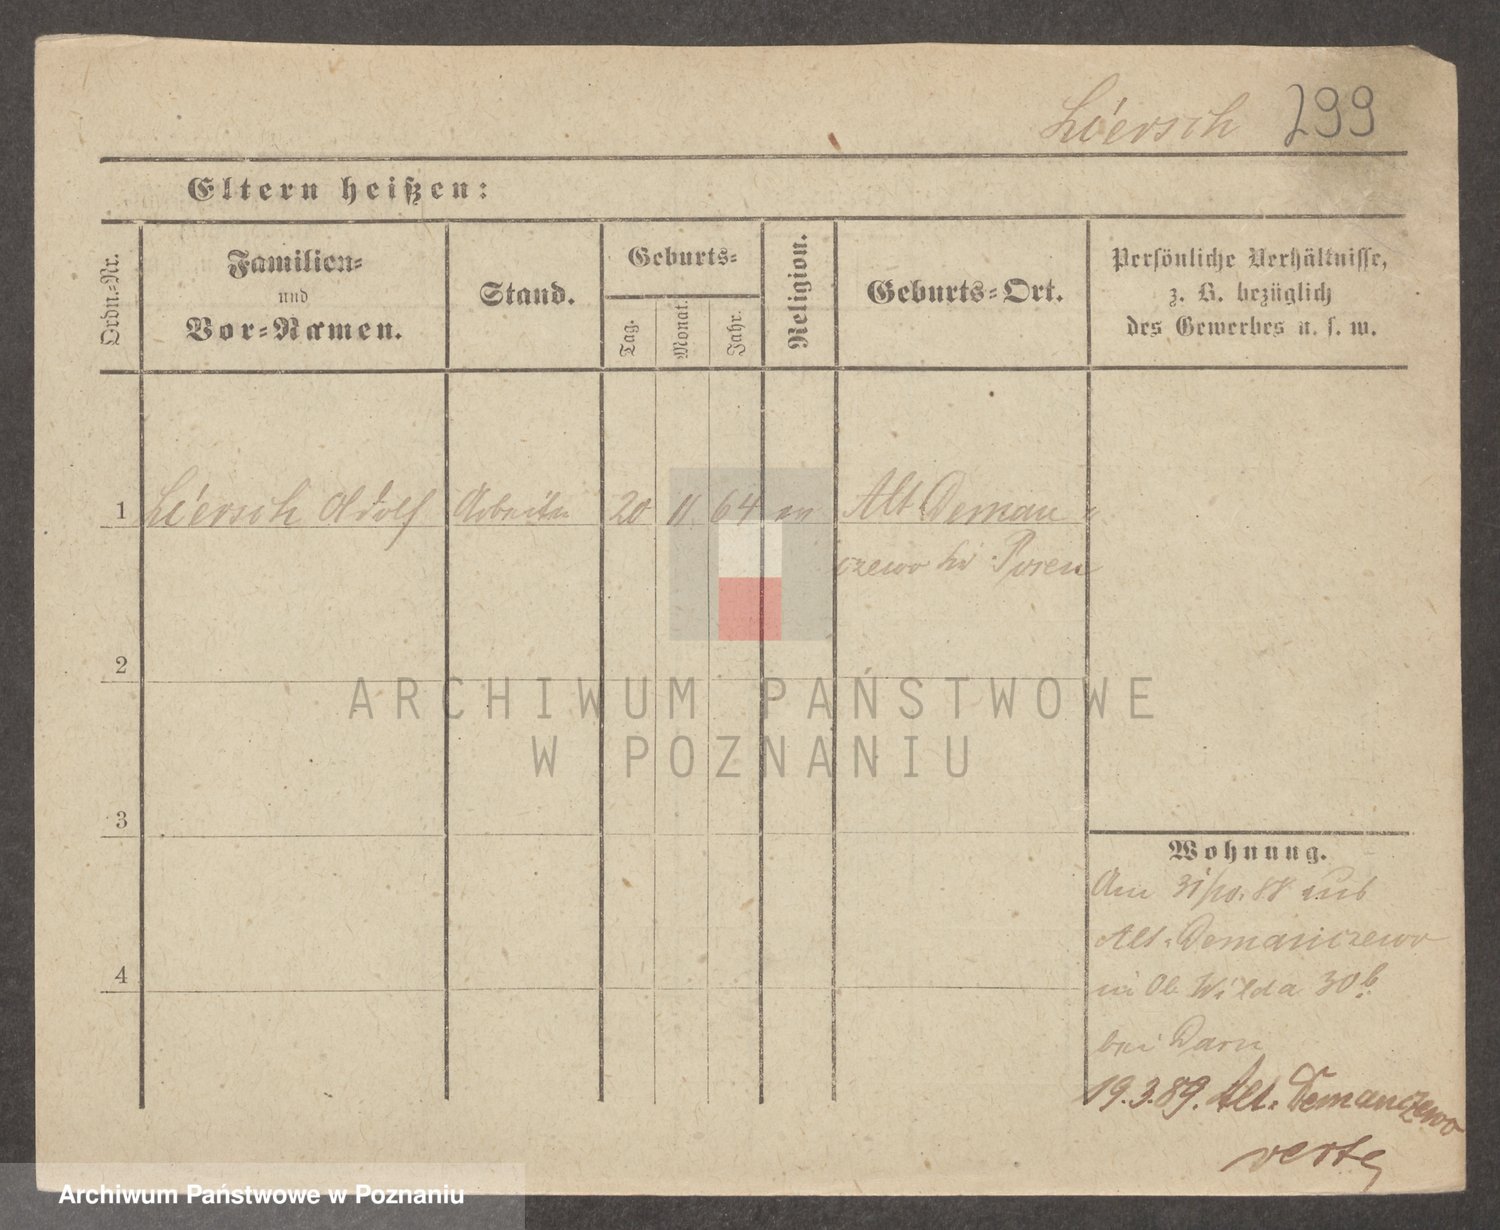 Liersch 299
Eltern heißen:
Ordn.-Nr.
Familien-
und
Vor-Namen.
Stand.
Geburts-
Tag.
Monat.
Jahr.
Religion.
Geburts-Ort.
Persönliche Verhältnisse,
z. B. bezüglich
des Gewerbes u. s. w.
1 Liersch Adolf Arbeiter 20 11 64 ev Alt Deman-
czewo bei Posen
2
3
4
Wohnung.
Am 31/10. 88 aus
Alt-Demanczewo
in Ob Wilda 30b
bei
19.3.89. Alt-Demanczewo
verte
ARCHIWUM PAŃSTWOWE
W POZNANIU
Archiwum Państwowe w Poznaniu